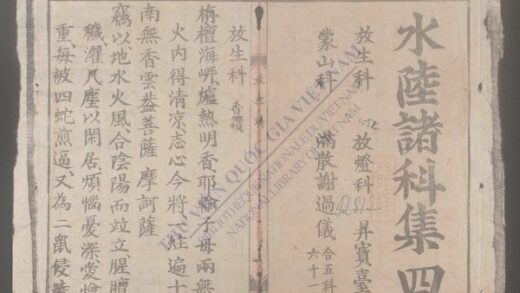 水陸諸科集四
放生科
放燈科
昇寶臺
蒙山科
滿散謝過儀
合五科
六十一
放生科
香讚
栴檀海岸爐熱明香耶輸子母兩無
火内得清凉志心今將一炷遍十
南無香雲盖菩薩摩訶薩
竊以地水火風合陰陽而竝立腥膻
穢濯凡塵以閑居煩惱憂深愛
重每被四蛇煎逼又為二鼠侵
THƯ VIỆN QUỐC GIA VIỆT NAM
BIBLIOTHÈQUE NATIONALE DU VIETNAM
NATIONAL LIBRARY OF VIETNAM